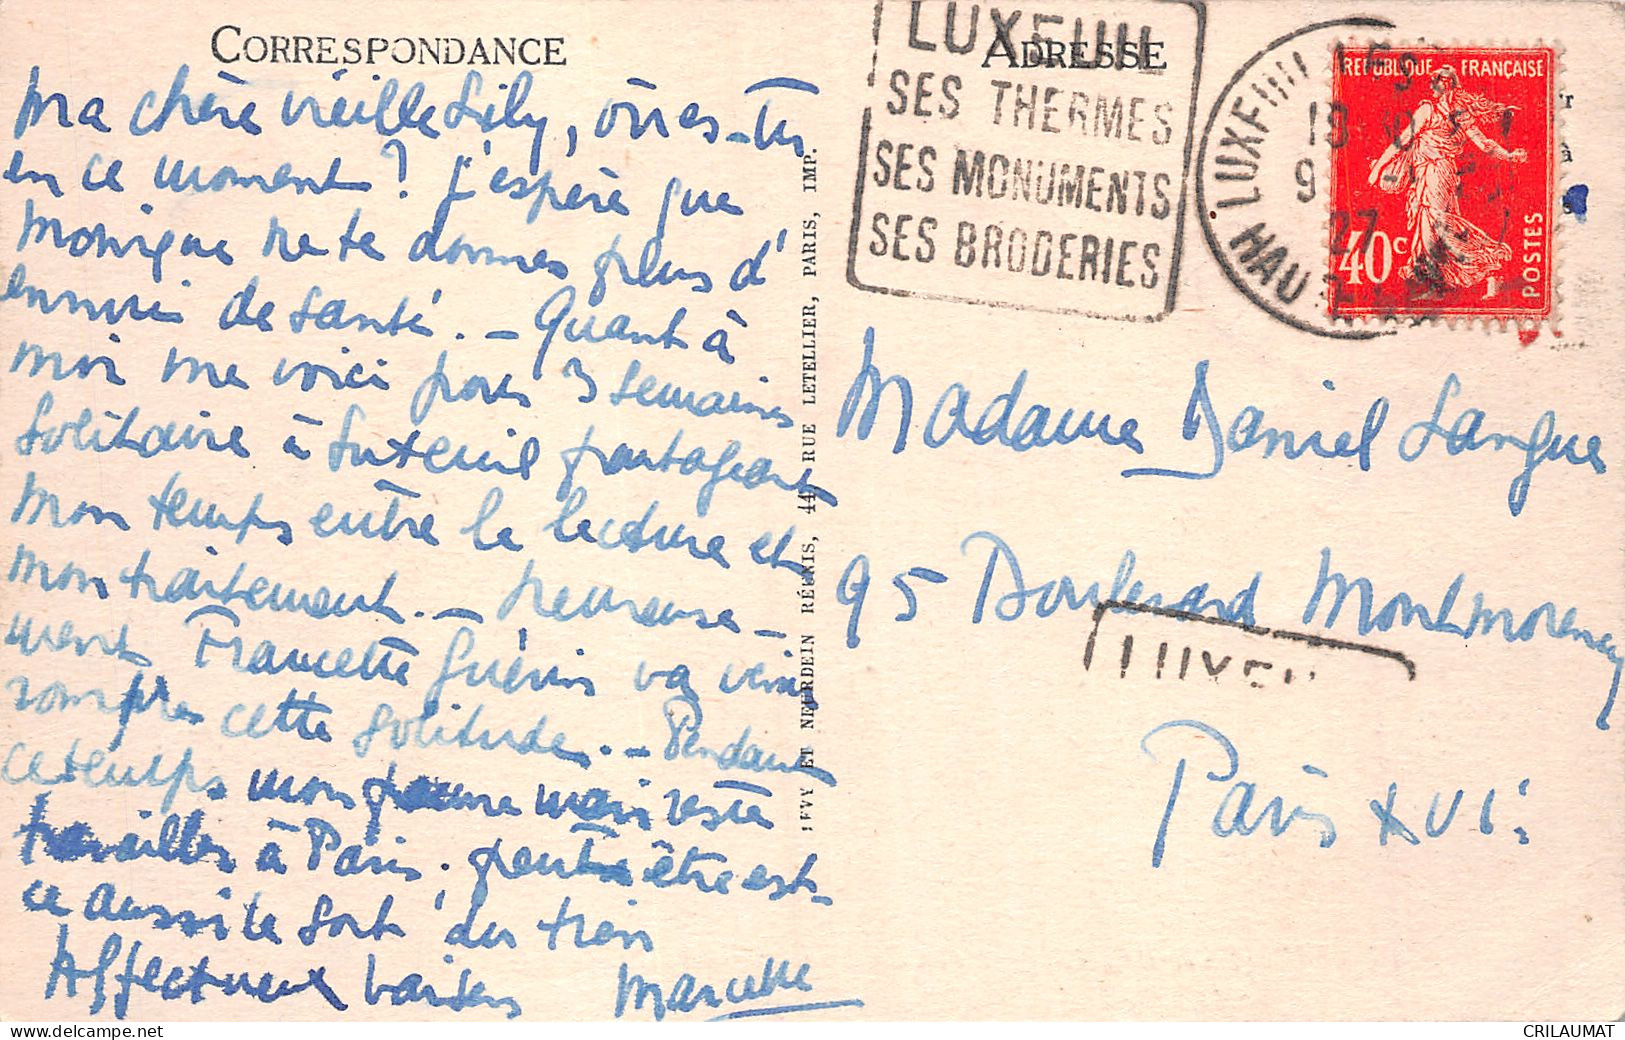 CORRESPONDANCE
Ma chère vieille Lily, où es-tu
en ce moment ? J'espère que
Monique ne te donnes plus d'
ennui de santé. - Quant à
moi me voici pour 3 semaines
solitaire à Luxeuil partageant
mon temps entre la lecture et
mon traitement. - heureuse-
ment Francette Guérin va venir
rompre cette solitude. - Pendant
ce temps mon pauvre mari reste
travailler à Paris, peut être est-
ce aussi le sort du tien
Affectueux baisers Marcelle
LEVY ET NEURDEIN RÉUNIS, 44, RUE LETELLIER, PARIS, IMP.
ADRESSE
LUXEUIL
SES THERMES
SES MONUMENTS
SES BRODERIES
LUXEUIL LES
HAU
27
REPUBLIQUE FRANÇAISE
40c
POSTES
Madame Daniel Langue
95 Boulevard Montmorency
Paris XVIe
CRILAUMAT